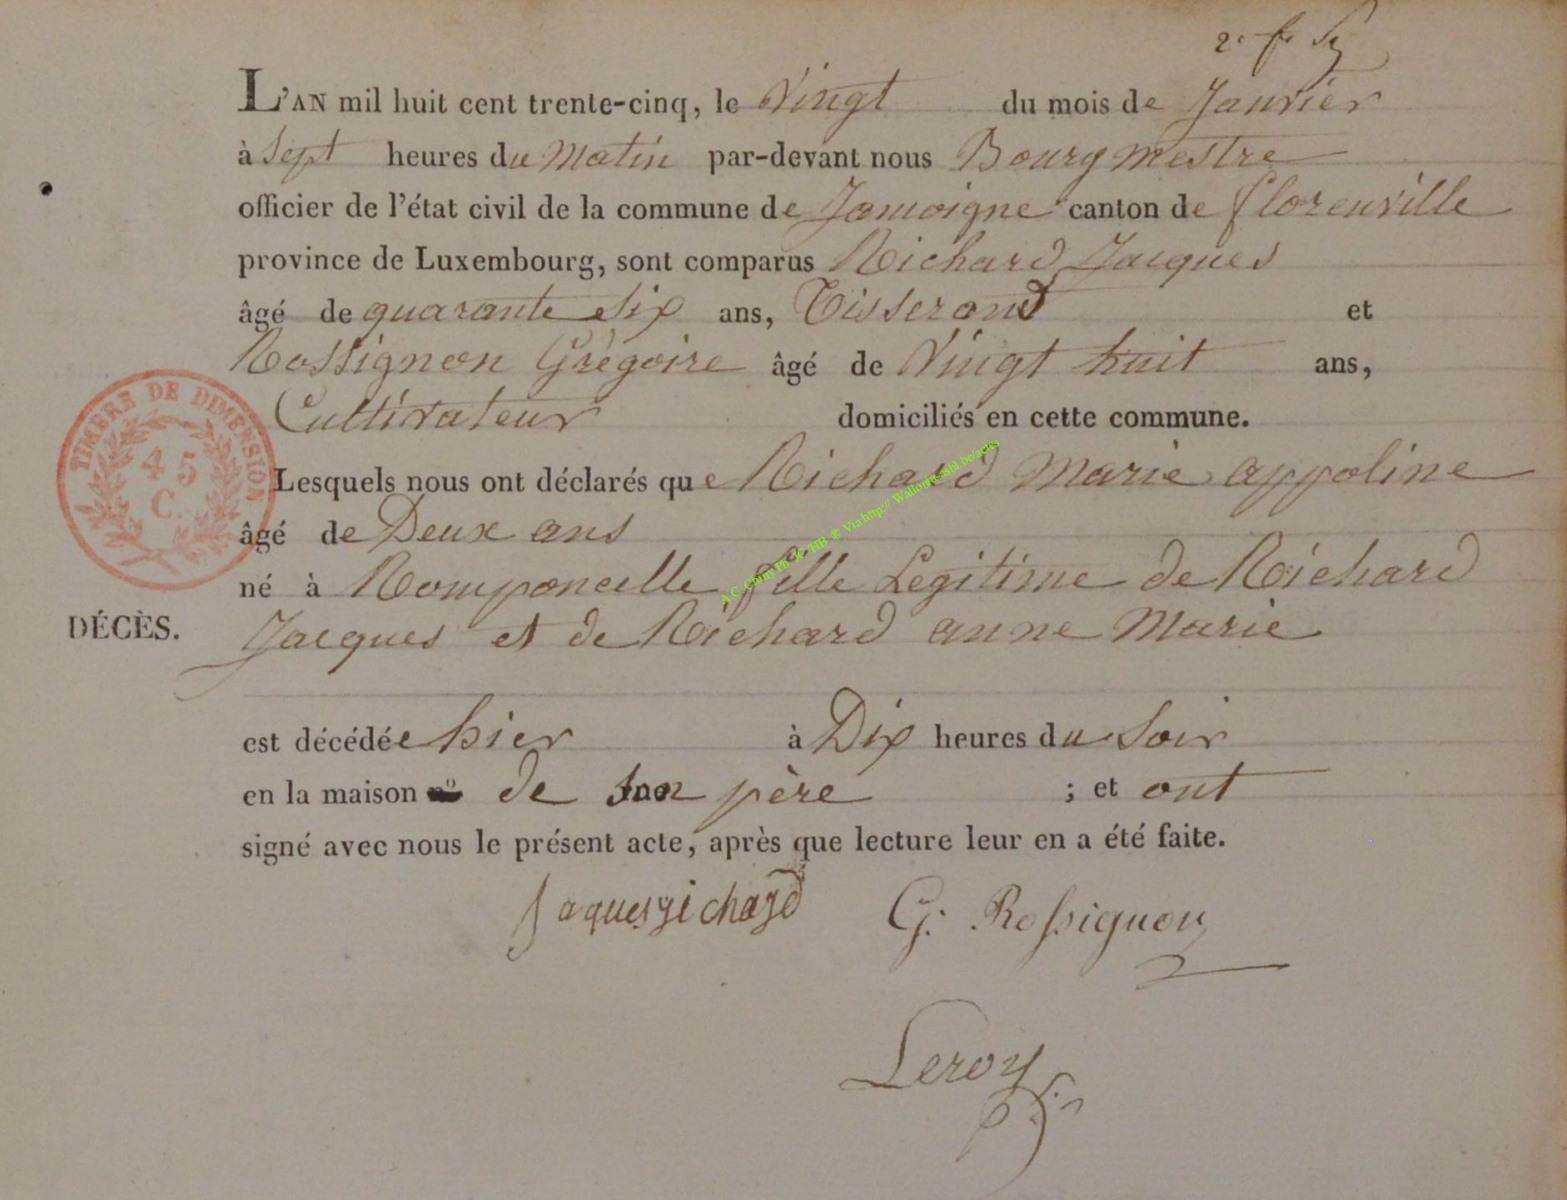 L'AN mil huit cent trente-cinq, le Vingt du mois de Janvier
à Sept heures du Matin par-devant nous Bourgmestre
officier de l'état civil de la commune de Jamoigne canton de florenville
province de Luxembourg, sont comparus Richard Jacques
âgé de quarante Six ans, Tisserand et
Rossignon Grégoire âgé de Vingt huit ans,
Cultivateur domiciliés en cette commune.
TIMBRE DE DIMENSION
45
C.
Lesquels nous ont déclarés que Richard Marie appoline
âgé de Deux ans
né à Romponcelle fille Legitime de Richard
DÉCÈS.
Jacques et de Richard anne Marie
est décédée hier à Dix heures du Soir
en la maison de son père ; et ont
signé avec nous le présent acte, après que lecture leur en a été faite.
Jaques richard G. Rossignon
Leroy